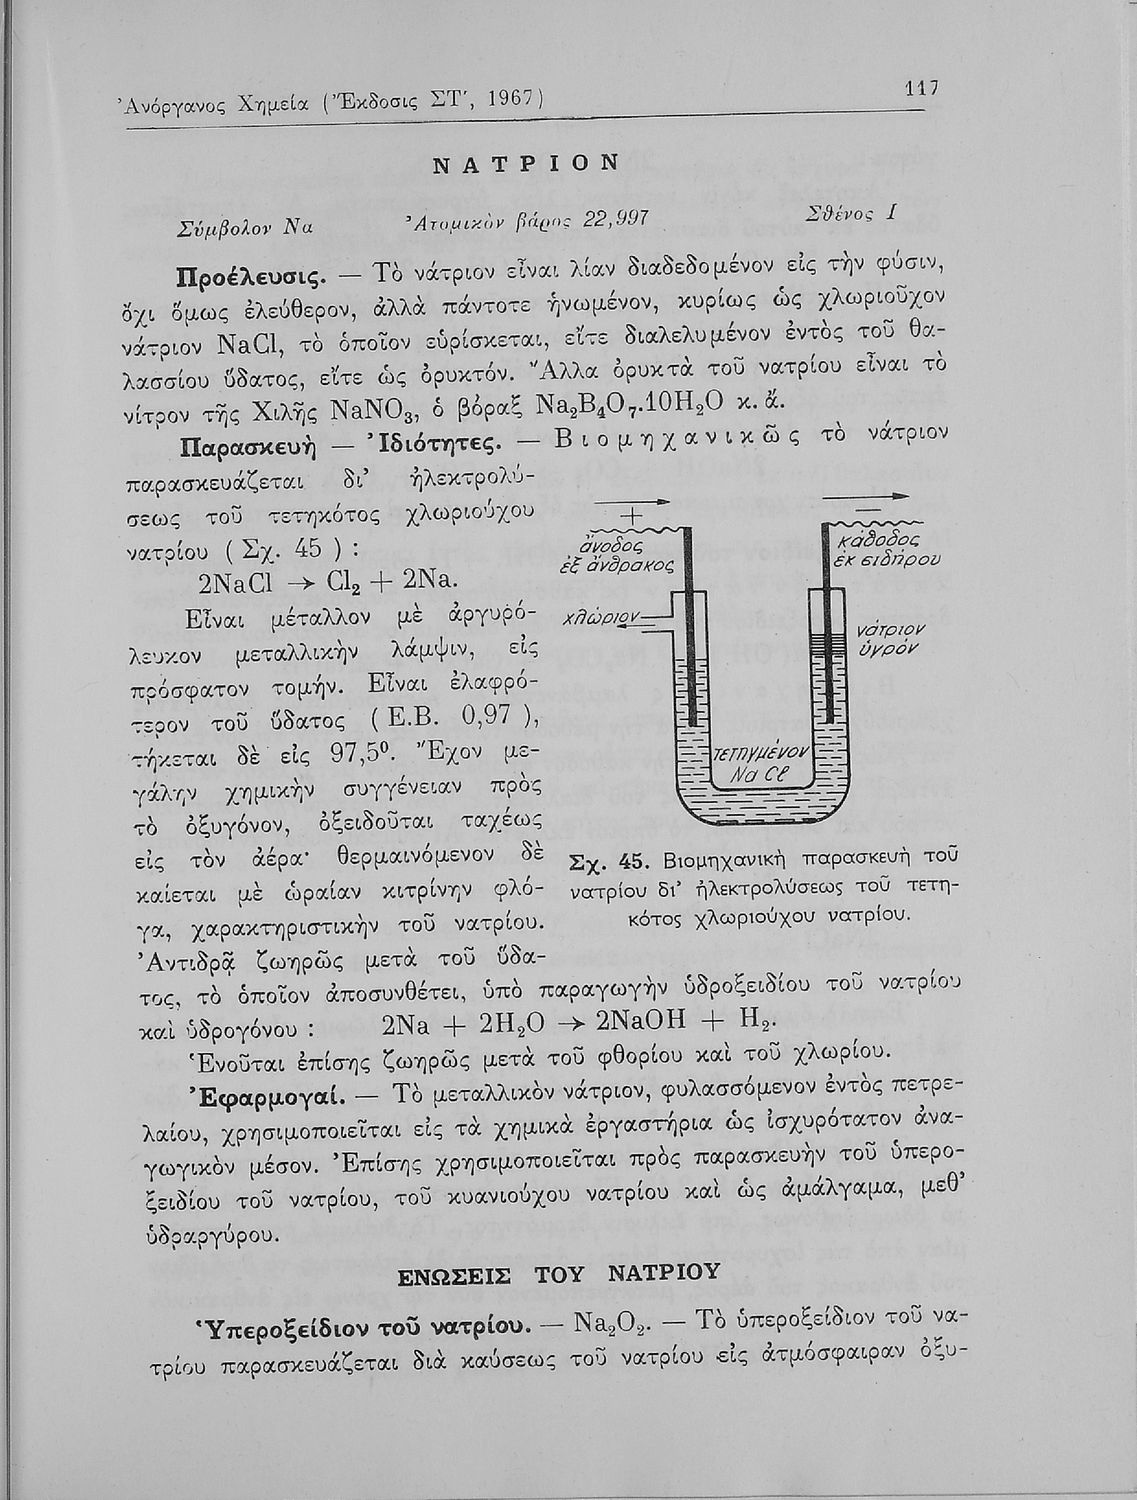 Ἀνόργανος Χημεία (Ἔκδοσις ΣΤ', 1967)
117
ΝΑΤΡΙΟΝ
Σύμβολον Na Ἀτομικὸν βάρος 22,997 Σθένος I
Προέλευσις. — Τὸ νάτριον εἶναι λίαν διαδεδομένον εἰς τὴν φύσιν,
ὄχι ὅμως ἐλεύθερον, ἀλλὰ πάντοτε ἡνωμένον, κυρίως ὡς χλωριοῦχον
νάτριον NaCl, τὸ ὁποῖον εὑρίσκεται, εἴτε διαλελυμένον ἐντὸς τοῦ θα-
λασσίου ὕδατος, εἴτε ὡς ὀρυκτόν. Ἄλλα ὀρυκτὰ τοῦ νατρίου εἶναι τὸ
νίτρον τῆς Χιλῆς NaNO₃, ὁ βόραξ Na₂B₄O₇.10H₂O κ. ἄ.
Παρασκευὴ — Ἰδιότητες. — Βιομηχανικῶς τὸ νάτριον
παρασκευάζεται δι' ἠλεκτρολύ-
σεως τοῦ τετηκότος χλωριούχου
νατρίου ( Σχ. 45 ) :
2NaCl → Cl₂ + 2Na.
Εἶναι μέταλλον μὲ ἀργυρό-
λευκον μεταλλικὴν λάμψιν, εἰς
πρόσφατον τομήν. Εἶναι ἐλαφρό-
τερον τοῦ ὕδατος ( Ε.Β. 0,97 ),
τήκεται δὲ εἰς 97,5⁰. Ἔχον με-
γάλην χημικὴν συγγένειαν πρὸς
τὸ ὀξυγόνον, ὀξειδοῦται ταχέως
εἰς τὸν ἀέρα· θερμαινόμενον δὲ
καίεται μὲ ὡραίαν κιτρίνην φλό-
γα, χαρακτηριστικὴν τοῦ νατρίου.
Ἀντιδρᾷ ζωηρῶς μετὰ τοῦ ὕδα-
+
−
ἄνοδος
ἐξ ἄνθρακος
κάθοδος
ἐκ σιδήρου
χλώριον
νάτριον
ὑγρόν
τετηγμένον
Na Cl
Σχ. 45. Βιομηχανικὴ παρασκευὴ τοῦ
νατρίου δι' ἠλεκτρολύσεως τοῦ τετη-
κότος χλωριούχου νατρίου.
τος, τὸ ὁποῖον ἀποσυνθέτει, ὑπὸ παραγωγὴν ὑδροξειδίου τοῦ νατρίου
καὶ ὑδρογόνου : 2Na + 2H₂O → 2NaOH + H₂.
Ἑνοῦται ἐπίσης ζωηρῶς μετὰ τοῦ φθορίου καὶ τοῦ χλωρίου.
Ἐφαρμογαί. — Τὸ μεταλλικὸν νάτριον, φυλασσόμενον ἐντὸς πετρε-
λαίου, χρησιμοποιεῖται εἰς τὰ χημικὰ ἐργαστήρια ὡς ἰσχυρότατον ἀνα-
γωγικὸν μέσον. Ἐπίσης χρησιμοποιεῖται πρὸς παρασκευὴν τοῦ ὑπερο-
ξειδίου τοῦ νατρίου, τοῦ κυανιούχου νατρίου καὶ ὡς ἀμάλγαμα, μεθ'
ὑδραργύρου.
ΕΝΩΣΕΙΣ ΤΟΥ ΝΑΤΡΙΟΥ
Ὑπεροξείδιον τοῦ νατρίου. — Na₂O₂. — Τὸ ὑπεροξείδιον τοῦ να-
τρίου παρασκευάζεται διὰ καύσεως τοῦ νατρίου εἰς ἀτμόσφαιραν ὀξυ-